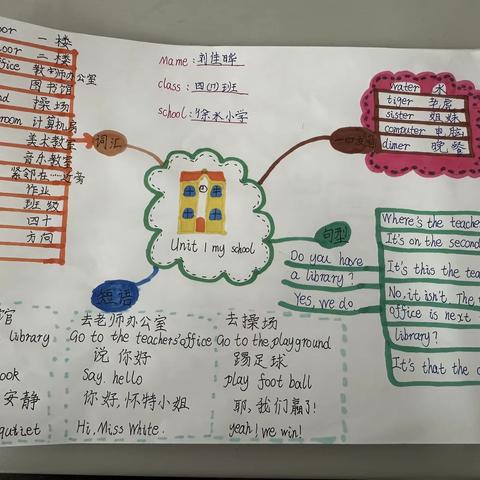 Name: 刘佳晔
class: 四(四)班
school: 徐水小学
oor 一楼
loor 二楼
ffice 教师办公室
图书馆
nd 操场
room 计算机房
美术教室
音乐教室
紧邻在……近旁
作业
班级
四十
方向
词汇
water 水
tiger 老虎
sister 姐妹
computer 电脑
dinner 晚餐
Unit 1 my school
句型
Do you have
a library?
Yes, we do
Where's the teache
It's on the second
It's this the tea
No, it isn't. The
office is next
library?
It's that the c
短语
馆
library
ook
安静
qutiet
去老师办公室
Go to the teachers'office
说 你好
Say. hello
你好,怀特小姐
Hi, Miss White.
去操场
Go to the playground
踢足球
play foot ball
耶,我们赢了!
yeah! we win!